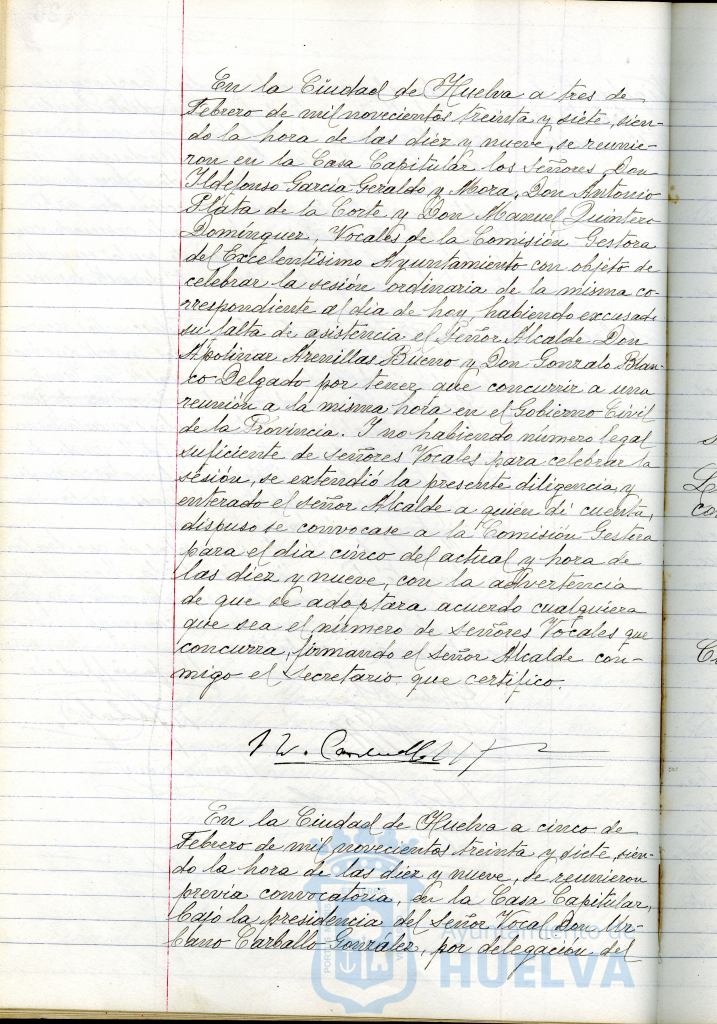 En la Ciudad de Huelva a tres de
Febrero de mil novecientos treinta y siete, sien-
do la hora de las diez y nueve, se reunie-
ron en la Casa Capitular los señores Don
Ildefonso García Geraldo y Mora, Don Antonio
Plata de la Corte y Don Manuel Quintero
Dominguez, Vocales de la Comisión Gestora
del Excelentísimo Ayuntamiento con objeto de
celebrar la sesión ordinaria de la misma co-
rrespondiente al día de hoy, habiendo excusado
su falta de asistencia el Señor Alcalde Don
Apolinar Arenillas Bueno y Don Gonzalo Blan-
co Delgado por tener que concurrir a una
reunión a la misma hora en el Gobierno Civil
de la Provincia. Y no habiendo número legal
suficiente de señores Vocales para celebrar la
sesión, se extendió la presente diligencia, y
enterado el señor Alcalde a quien dí cuenta,
dispuso se convocase a la Comisión Gestora
para el día cinco del actual y hora de
las diez y nueve, con la advertencia
de que se adoptara acuerdo cualquiera
que sea el número de señores Vocales que
concurra, firmando el señor Alcalde con-
migo el Secretario, que certifico.
En la Ciudad de Huelva a cinco de
Febrero de mil novecientos treinta y siete, sien-
do la hora de las diez y nueve, se reunieron
previa convocatoria, en la Casa Capitular,
bajo la presidencia del Señor Vocal Don Ur-
bano Carballo González, por delegación del
Ayuntamiento
HUELVA